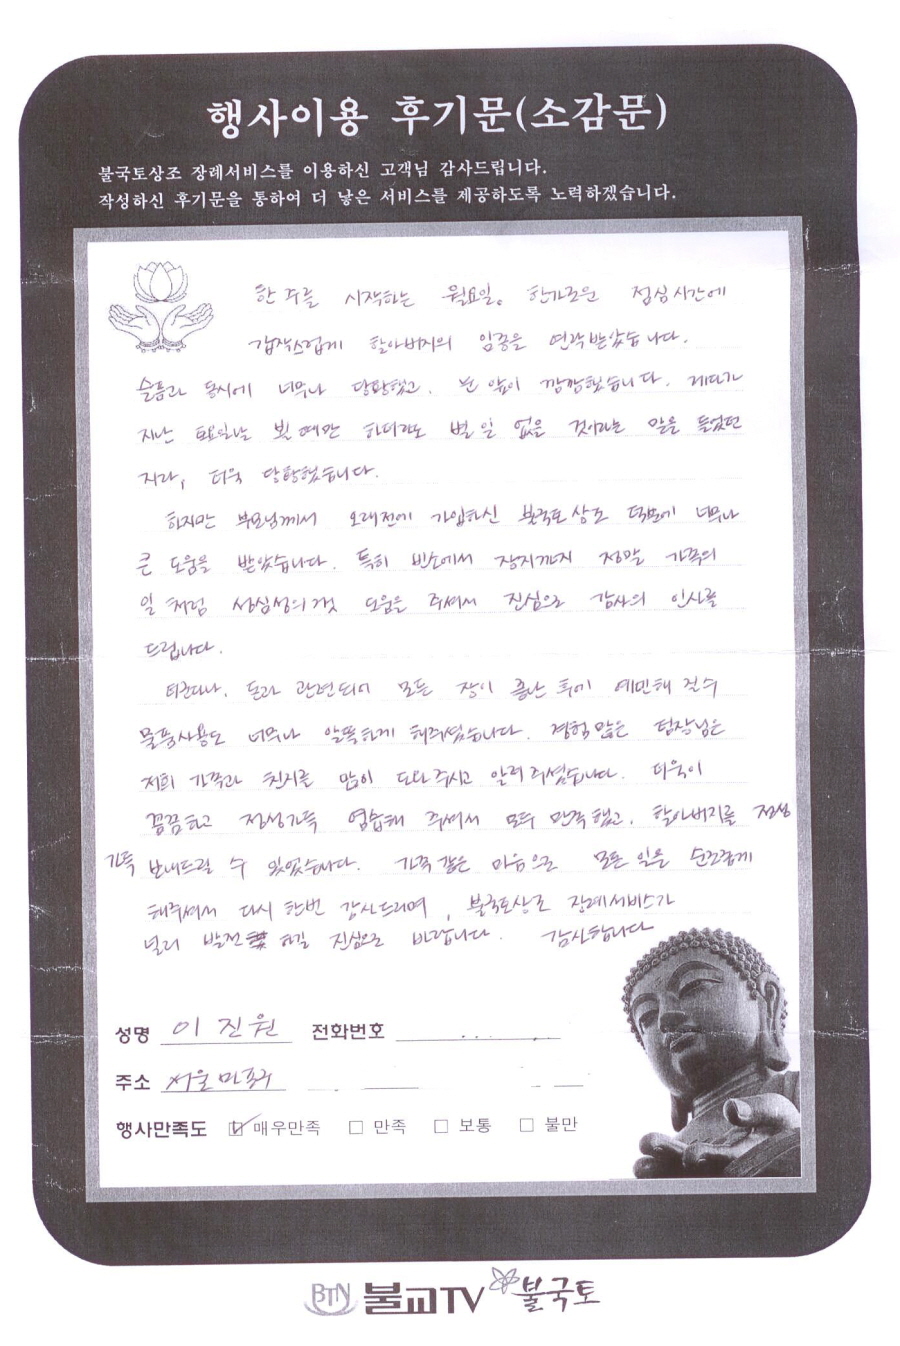 행사이용 후기문(소감문)
불국토상조 장례서비스를 이용하신 고객님 감사드립니다.
작성하신 후기문을 통하여 더 낳은 서비스를 제공하도록 노력하겠습니다.
한 주를 시작하는 월요일. 한가로운 점심시간에
갑작스럽게 할아버지의 임종을 연락받았습니다.
슬픔과 동시에 너무나 당황했고, 눈 앞이 깜깜했습니다. 게다가
지난 토요일날 뵐 때만 하더라도 별 일 없을 것이라는 말을 들었던
지라, 더욱 당황했습니다.
하지만 부모님께서 오래전에 가입하신 불국토 상조 덕분에 너무나
큰 도움을 받았습니다. 특히 빈소에서 장지까지 정말 가족의
일 처럼 성심성의껏 도움을 주셔서 진심으로 감사의 인사를
드립니다.
돈과 관련되어 모든 장이 끝난 후에 예민해 질수
물품사용도 너무나 알뜰하게 해주셨습니다. 경험 많은 팀장님은
저희 가족과 친지를 많이 도와주시고 알려주셨습니다. 더욱이
꼼꼼하고 정성가득 염습해 주셔서 모두 만족했고, 할아버지를 정성
가득 보내드릴 수 있었습니다. 가족 같은 마음으로 모든 일을 순조롭게
해주셔서 다시 한번 감사드리며, 불국토상조 장례서비스가
널리 발전 하길 진심으로 바랍니다. 감사합니다
성명 이진원 전화번호
주소 서울 마포구
행사만족도 매우만족 만족 보통 불만
BTN 불교TV 불국토